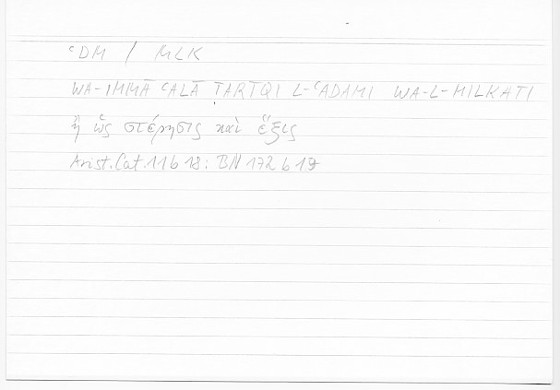 ʿDM / MLK
WA-IMMĀ ʿALĀ ṬARĪQI L-ʿADAMI WA-L-MILKATI
ἢ ὡς στέρησις καὶ ἕξις
Arist. Cat. 11b18: BN 172b19